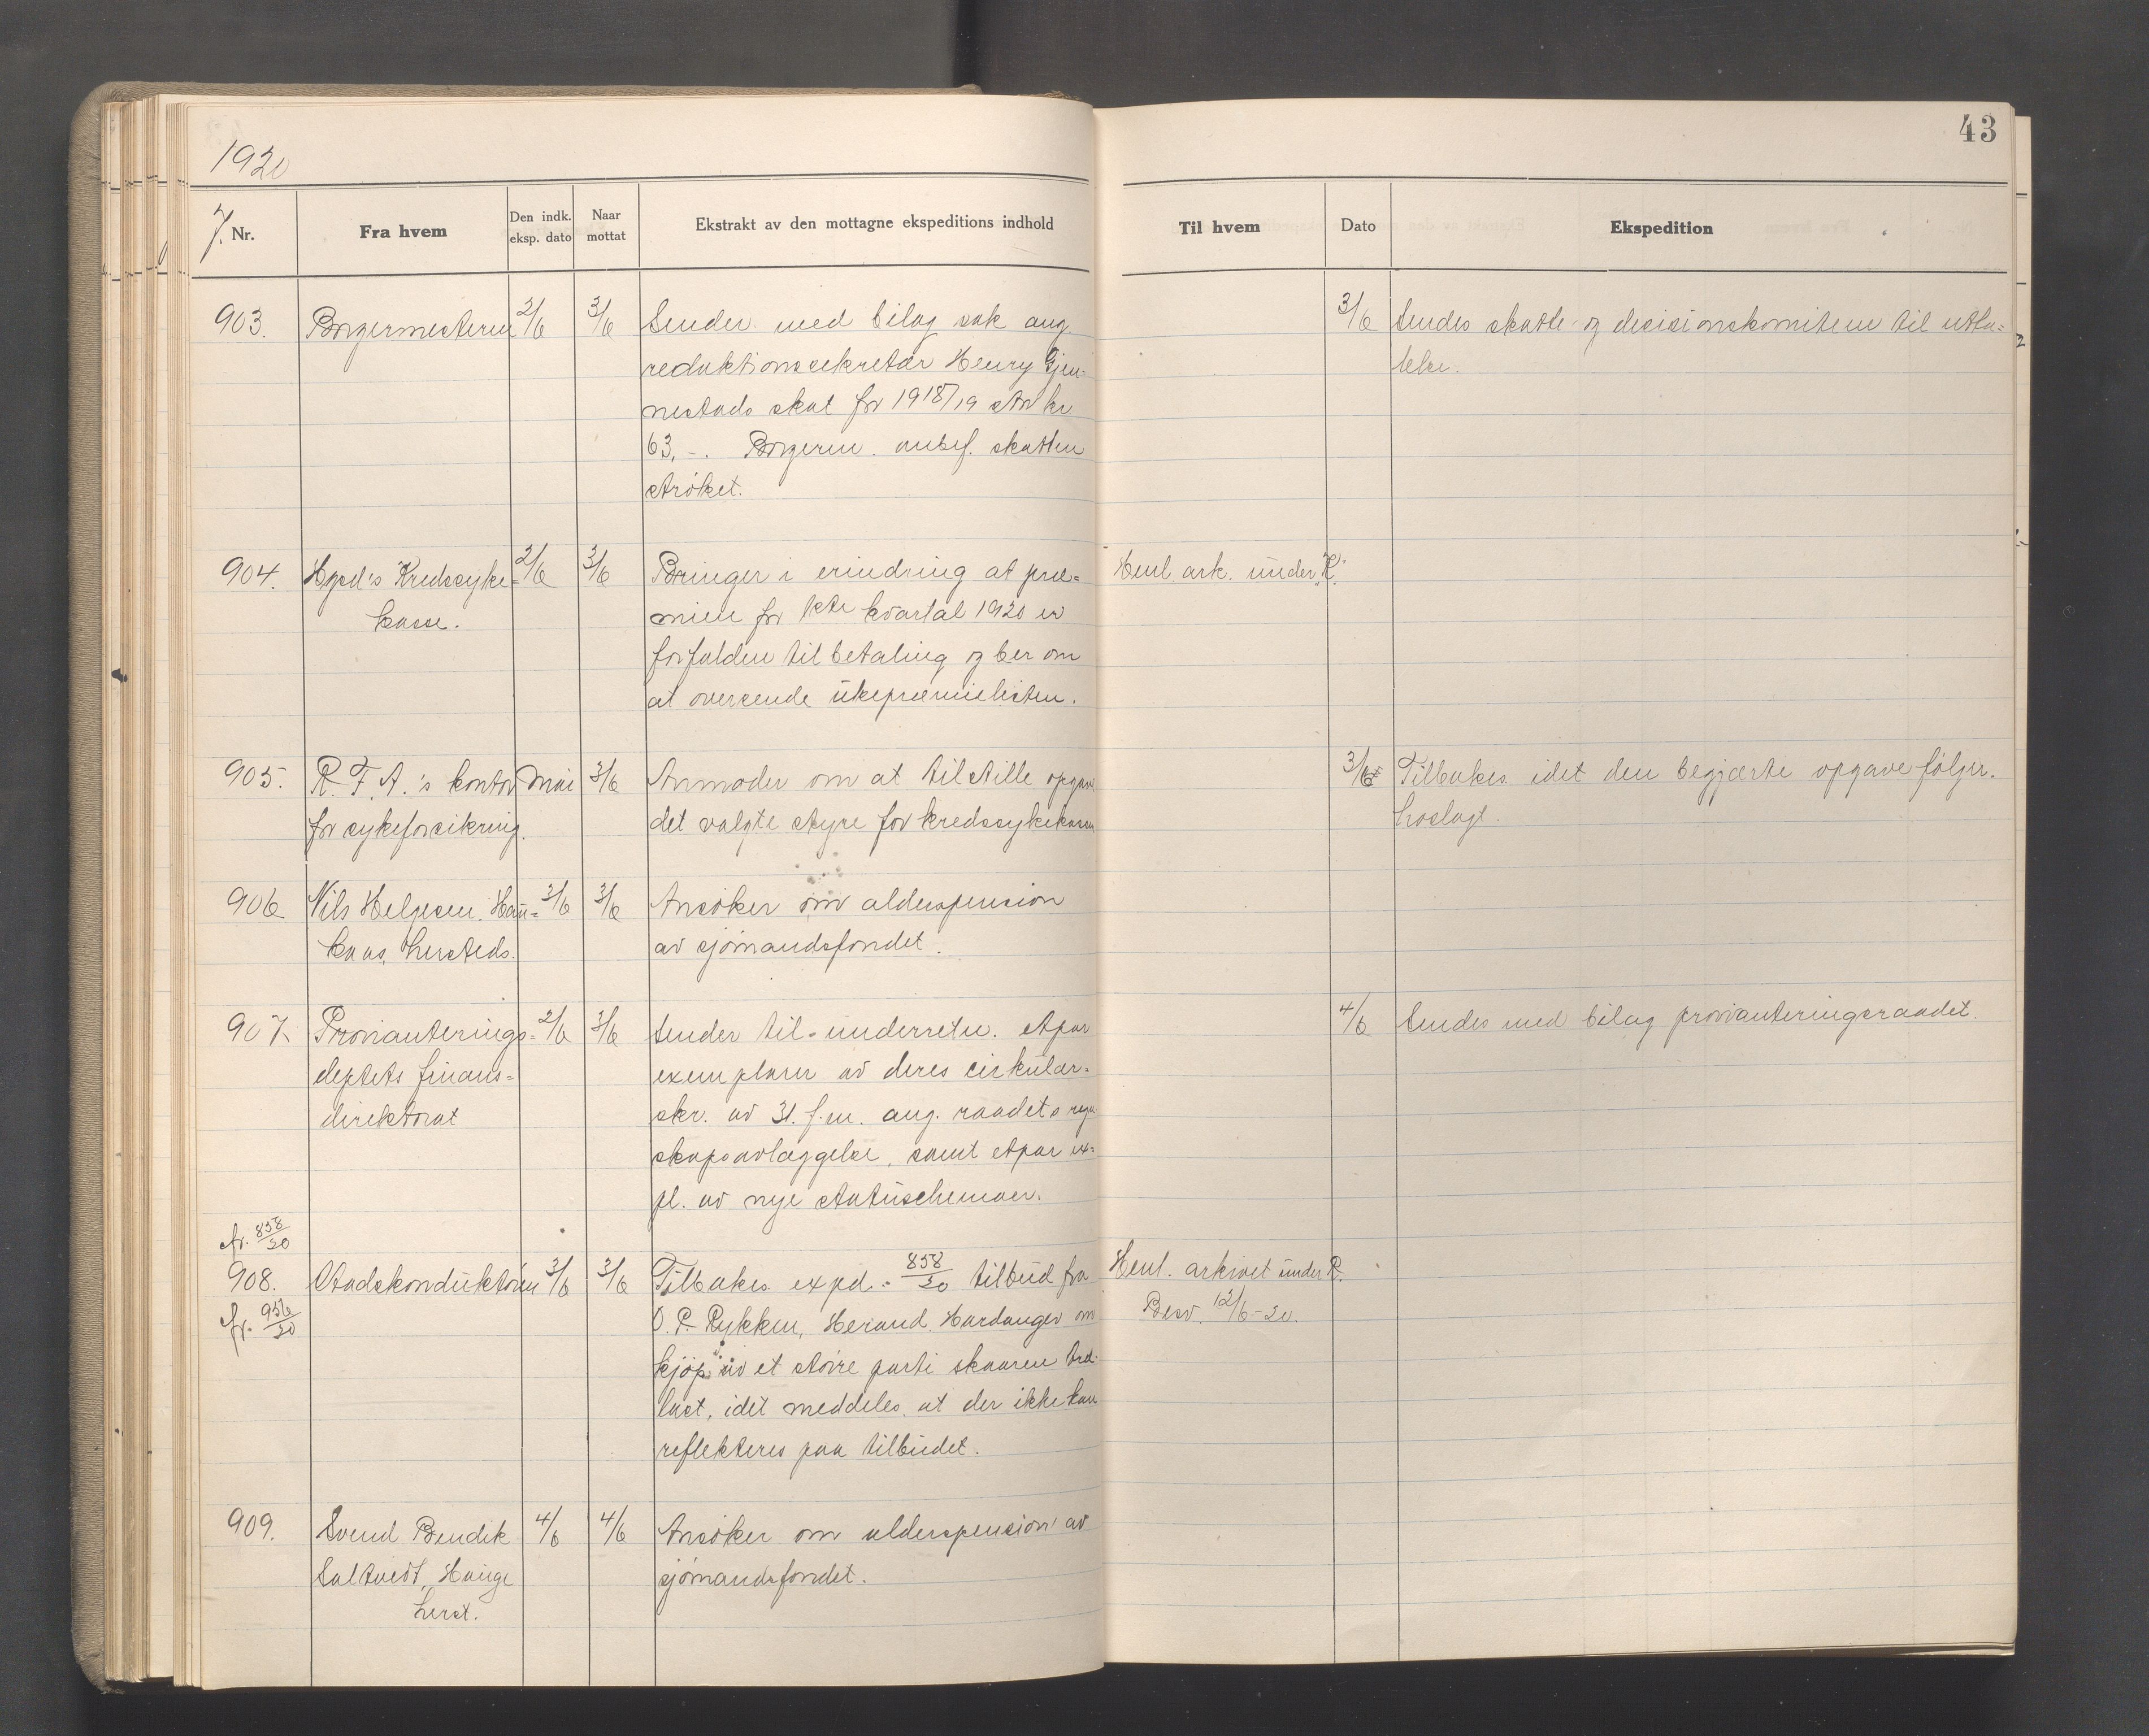 1920
43
J. Nr.
Fra hvem
Den indk. eksp. dato
Naar mottat
Ekstrakt av den mottagne ekspeditions indhold
Til hvem
Dato
Ekspedition
903. Borgermesteren 2/6 3/6 Sender med bilag sak ang. 3/6 Sendes skatte- og decisionskomiteen til utta=
redaktionssekretær Henry Gjen= telse.
nestads skat for 1918/19 stor kr.
63,-. Borgerm. anbef. skatten
strøket.
904. Hgsd's Kredssyke= 2/6 3/6 Bringer i erindring at præ= Henl. ark. under "K".
kasse. mien for 1ste kvartal 1920 er
forfalden til betaling og ber om
at oversende ukepræmielisten.
905. R. F. A.'s kontor mai 3/6 Anmoder om at tilstille opgave 3/6 Tilbakes idet den begjærte opgave følger
for sykeforsikring. det valgte styre for kredssykekassen hoslagt.
906 Nils Helgesen, Hau= 3/6 3/6 Ansøker om alderspension
kaas, hersteds. av sjømandsfondet.
907. Provianterings= 2/6 3/6 Sender til underretn. et par 4/6 Sendes med bilag provianteringsraadet.
deptets finans= exemplarer av deres cirkulær=
direktorat skr. av 31. f.m. ang. raadets regn
skapsavlæggelse, samt et par ex=
pl. av nye statusschemaer.
cfr. 858/20
908. Stadskonduktøren 3/6 3/6 Tilbakes. exped. 858/20 tilbud fra Henl. arkivet under R.
cfr. 956/20 O. P. Rykken, Herand, Hardanger om Besv. 12/6-20.
kjøp av et større parti skaaren træ-
last, idet meddeles at der ikke kan
reflekteres paa tilbudet.
909. Svend Bendik 4/6 4/6 Ansøker om alderspension av
Saltvedt, Hauge sjømandsfondet.
herst.